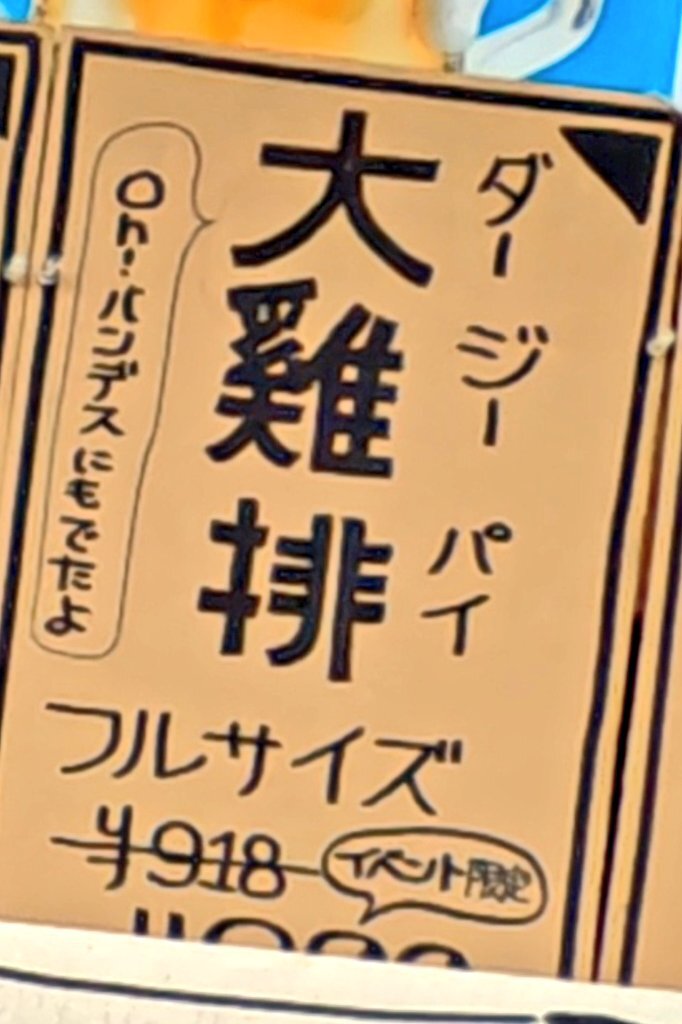 ダージーパイ
大雞排
Oh!バンデスにもでたよ
フルサイズ
¥918
イベント限定